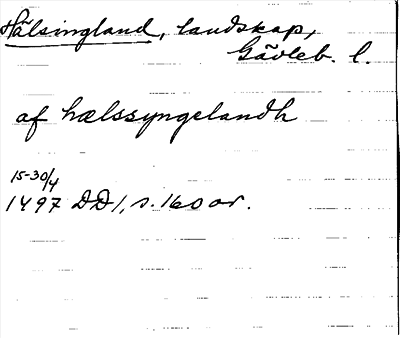 Hälsingland, landskap,
Gävleb. l.
af hælssyngelandh
15-30/4
1497 DD 1, s. 160 or.